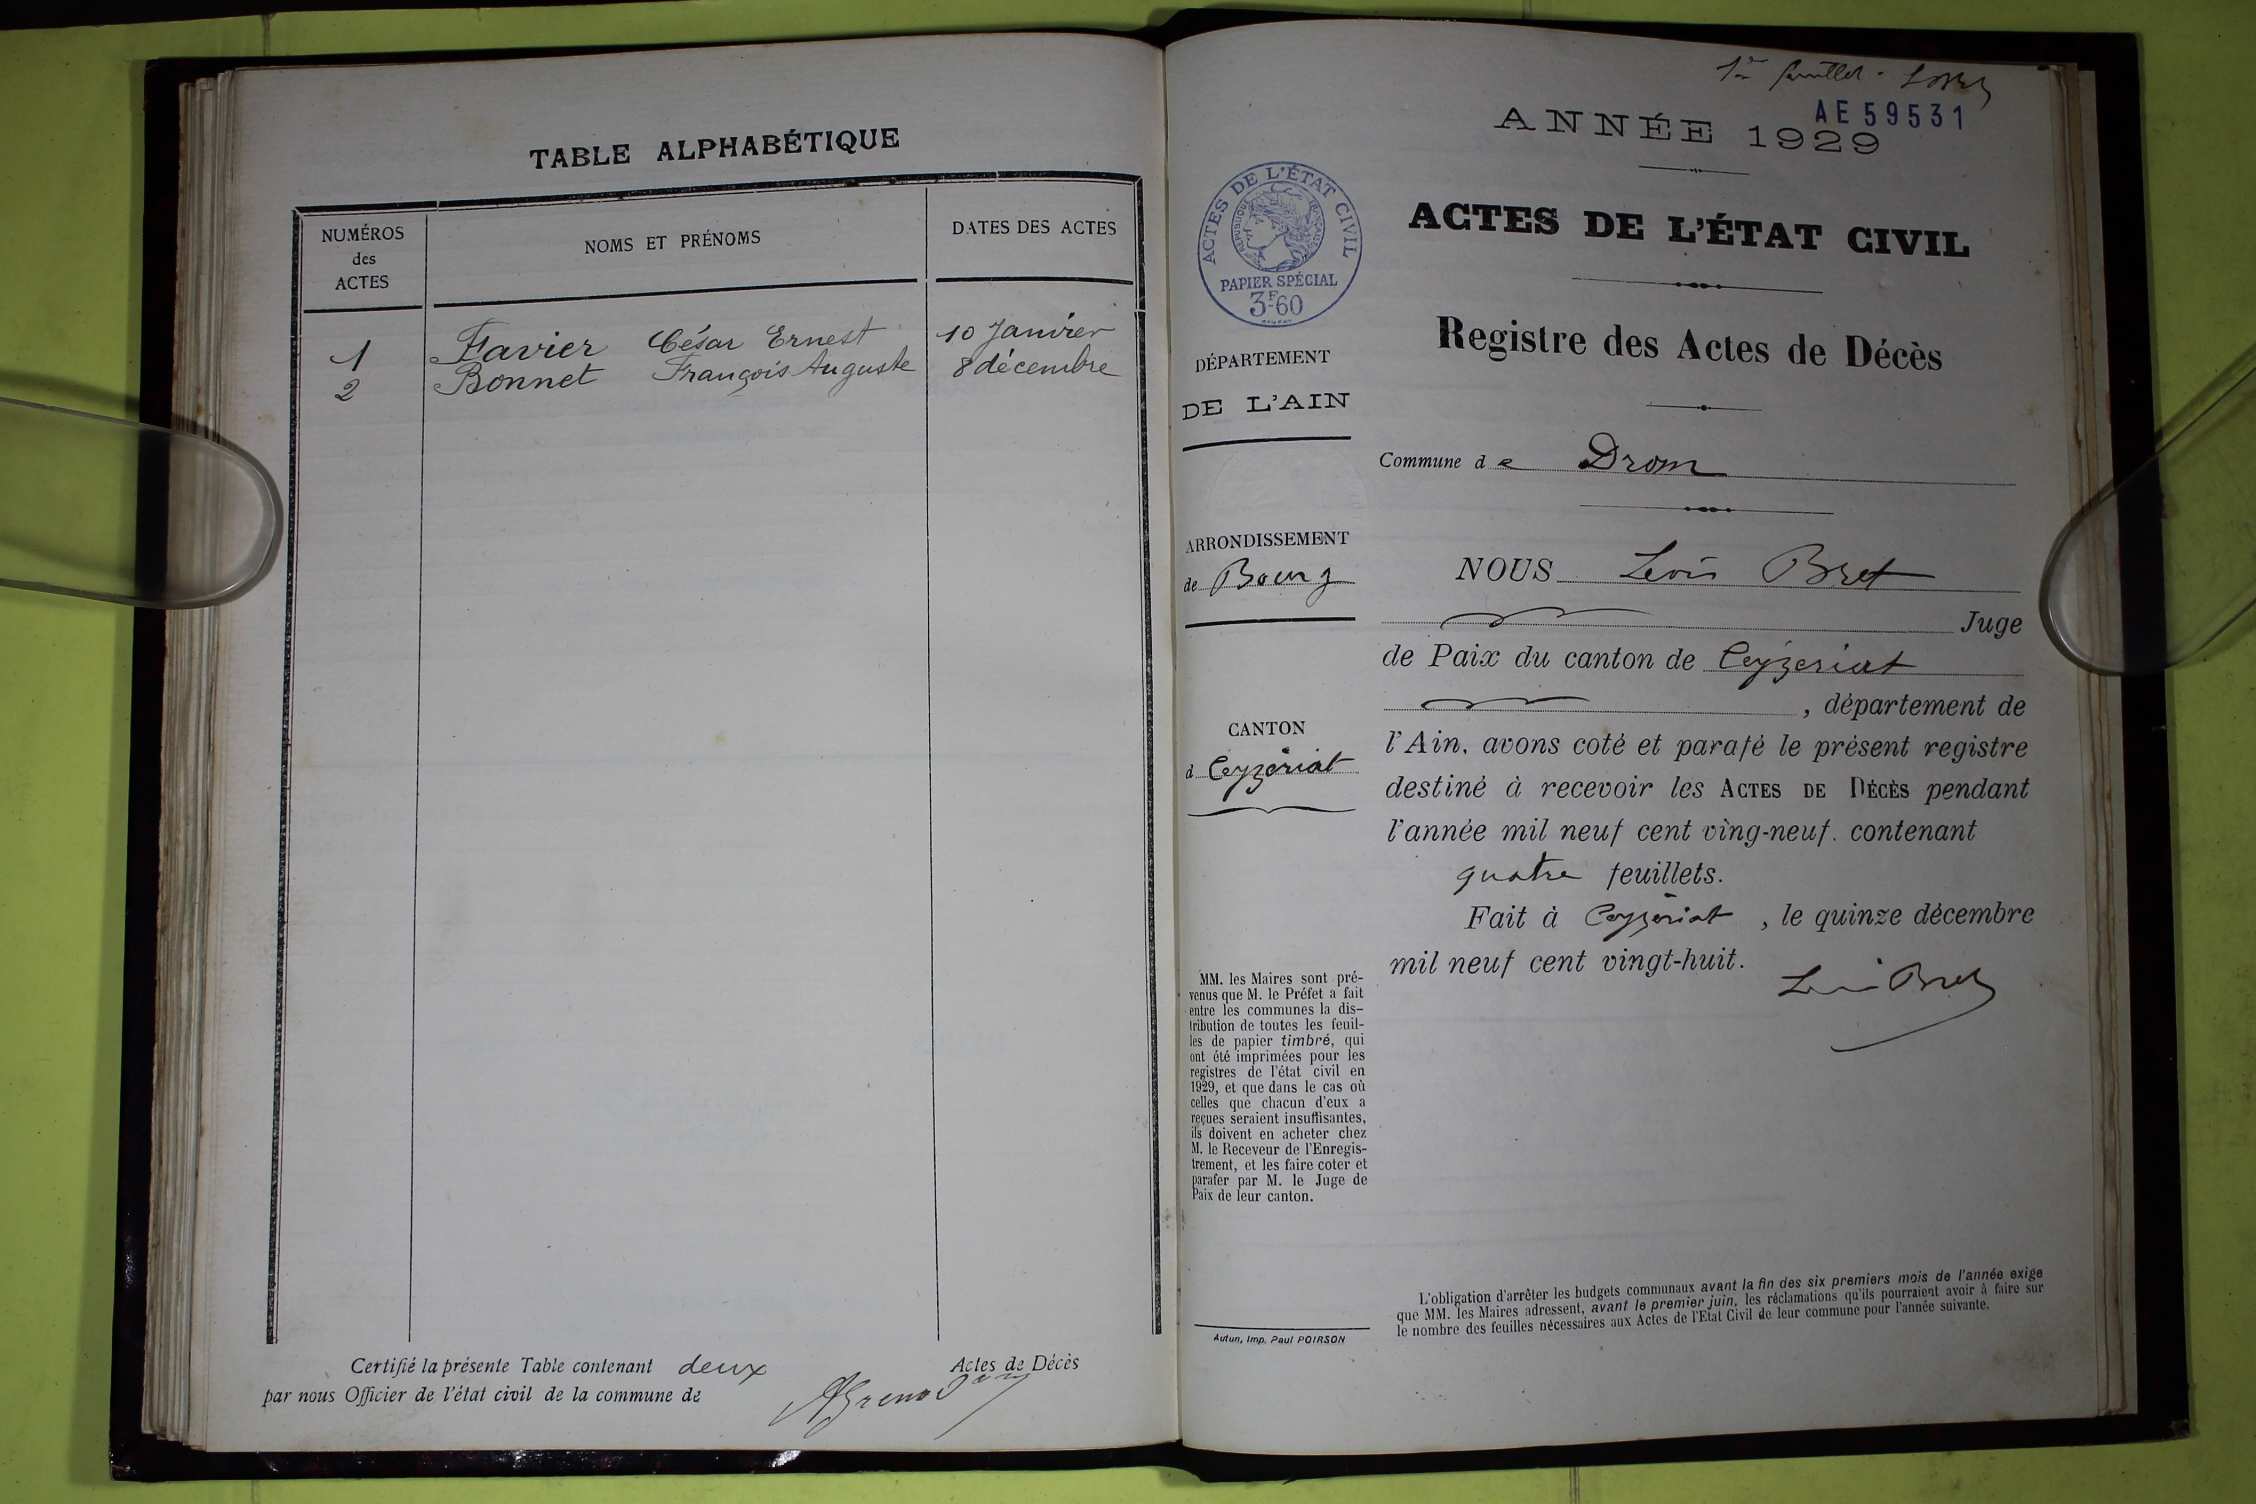 TABLE ALPHABÉTIQUE
NUMÉROS
des
ACTES
NOMS ET PRÉNOMS
DATES DES ACTES
1 Favier César Ernest 10 Janvier
2 Bonnet François Auguste 8 décembre
Certifié la présente Table contenant deux Actes de Décès
par nous Officier de l'état civil de la commune de
1er feuillet.
AE 59531
ANNÉE 1929
ACTES DE L'ÉTAT CIVIL
RÉPUBLIQUE FRANÇAISE
PAPIER SPÉCIAL
3F60
ACTES DE L'ÉTAT CIVIL
Registre des Actes de Décès
DÉPARTEMENT
DE L'AIN
Commune de Drom
ARRONDISSEMENT
de Bourg
NOUS Louis Bret
Juge
de Paix du canton de Ceyzeriat
, département de
CANTON
d Ceyzériat
l'Ain, avons coté et parafé le présent registre
destiné à recevoir les ACTES DE DÉCÈS pendant
l'année mil neuf cent vìng-neuf. contenant
quatre feuillets.
Fait à Ceyzériat, le quinze décembre
mil neuf cent vingt-huit.
Louis Bret
MM. les Maires sont pré-
venus que M. le Préfet a fait
entre les communes la dis-
tribution de toutes les feuil-
les de papier timbré, qui
ont été imprimées pour les
registres de l'état civil en
1929, et que dans le cas où
celles que chacun d'eux a
reçues seraient insuffisantes,
ils doivent en acheter chez
M. le Receveur de l'Enregis-
trement, et les faire coter et
parafer par M. le Juge de
Paix de leur canton.
Autun, Imp. Paul POIRSON
L'obligation d'arrêter les budgets communaux avant la fin des six premiers mois de l'année exige
que MM. les Maires adressent, avant le premier juin, les réclamations qu'ils pourraient avoir à faire sur
le nombre des feuilles nécessaires aux Actes de l'Etat Civil de leur commune pour l'année suivante.